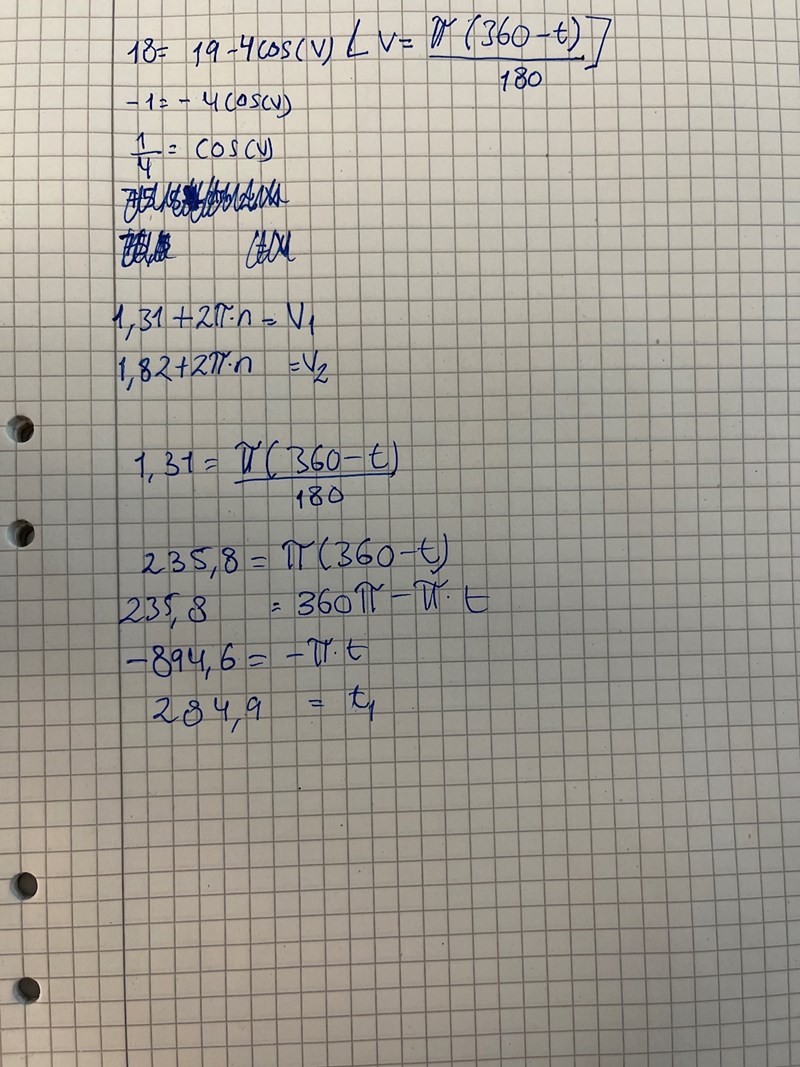 18 = 19 - 4cos(v) [ v = π(360-t)/180 ]
-1 = - 4cos(v)
1/4 = cos(v)
1,31 + 2π·n = V₁
1,82 + 2π·n = V₂
1,31 = π(360-t)/180
235,8 = π(360-t)
235,8 = 360π - π·t
-894,6 = -π·t
284,9 = t₁